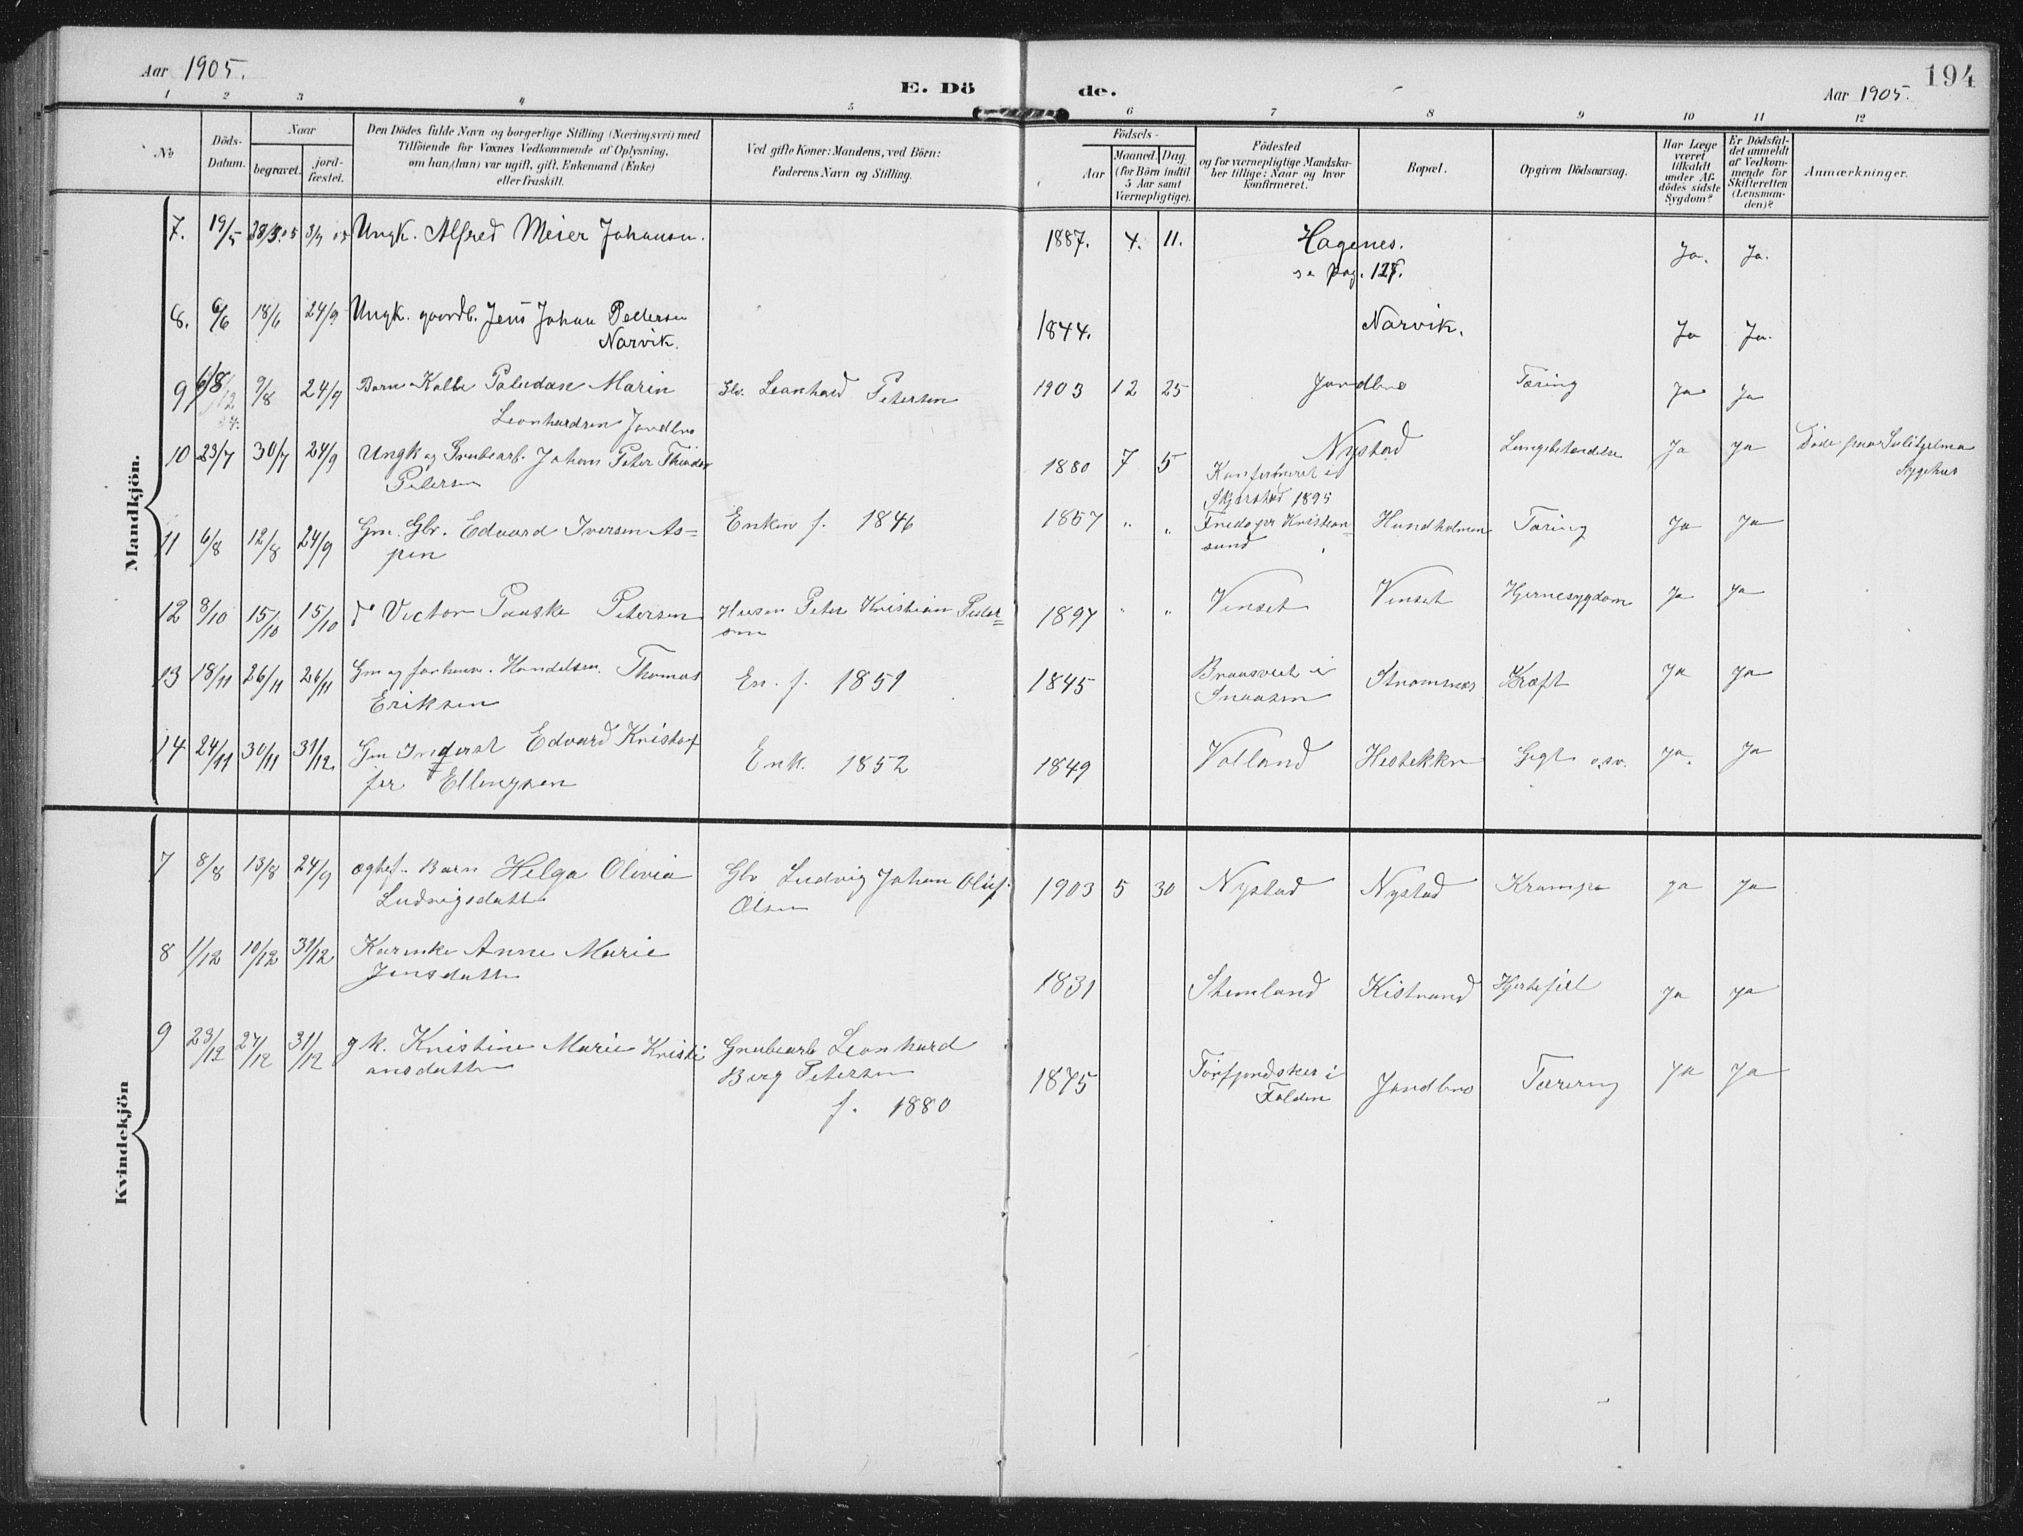 Aar 1905.
E. Dö de.
Aar 1905.
194
1 2 3 4 5 6 7 8 9 10 11 12
No
Döds-Datum.
Naar
begravet.
jord-fæstet.
Den Dödes fulde Navn og borgerlige Stilling (Næringsvei) med
Tilföiende for Voxnes Vedkommende af Oplysning,
om han (hun) var ugift, gift, Enkemand (Enke)
eller fraskilt.
Ved gifte Koner: Mandens, ved Börn:
Faderens Navn og Stilling.
Födsels-
Aar
Maaned. Dag.
(for Börn indtil
5 Aar samt
Værnepligtige).
Födested
og for værnepligtige Mandska-
ber tillige: Naar og hvor
konfirmeret.
Bopæl.
Opgiven Dödsaarsag.
Har Læge
været
tilkaldt
under Af-
dödes sidste
Sygdom?
Er Dödsfal-
det anmeldt
af Vedkom-
mende for
Skifteretten
(Lensman-
den)?
Anmærkninger.
Mandkjön.
7. 19/5 Ungk. Alfred Meier Johansen. 1887. 4. 11. Hagenes. Ja. Ja.
se pag. 127.
8. 6/6 18/6 24/9 Ungk. gaardb. Jens Johan Pedersen 1844. Narvik. Ja Ja.
Narvik.
9 9/8 24/9 Barn Kolbe Paludase Marin Gbr. Leonhard Petersen 1903 12 25 Jordbro Tæring Ja Ja
Leonhardsen Jordbro
10 23/7 30/7 24/9 Ungk og Grubearb. Johans Peter Thinder 1880 7 5 Nystad Lungebetændelse Ja Ja Døde paa Sulitjelma
Petersen Konfirmeret i Sygehus
Skjerstad 1895
11 6/8 12/8 24/9 Gm. Gbr. Edvard Iversen As- Enken f. 1846 1857 " " Fredøger Kristian- Hundholmen Tæring Ja Ja
pen sund
12 8/10 15/10 15/10 d Victor Pauske Petersen Husm Peter Kristian Peder- 1897 " " Venset Venset Hjernesygdom Ja Ja
sen
13 18/11 26/11 26/11 Gm og forhenv. Handelsm. Thomas En. f. 1851 1845 Braasvet i Strømnæs Kræft Ja Ja
Eriksen Snaasen
14 24/11 30/11 31/12 Gm Inderst Edvard Kristof- Enk. 1852 1849 Valland Hestekkn Gigt osv. Ja. Ja
fer Ellingsen
Kvindekjön
7 8/8 13/8 24/9 ægtef. Barn Helga Olivia Gbr Ludvig Johan Oluf 1903 5 30 Nystad Nystad Krampe Ja Ja
Ludvigsdatter Olsen
8 1/12 10/12 31/12 Karinke Anne Marie 1831 Stemland Kistrand Hjertefeil Ja Ja
Jensdatter
9 23/12 27/12 31/12 gk. Kristine Marie Kristi Grubearb Leonhard 1875 Tørfjordskar i Jordbro Tærering Ja Ja
ansdatter Berg Petersen Folden
f. 1880